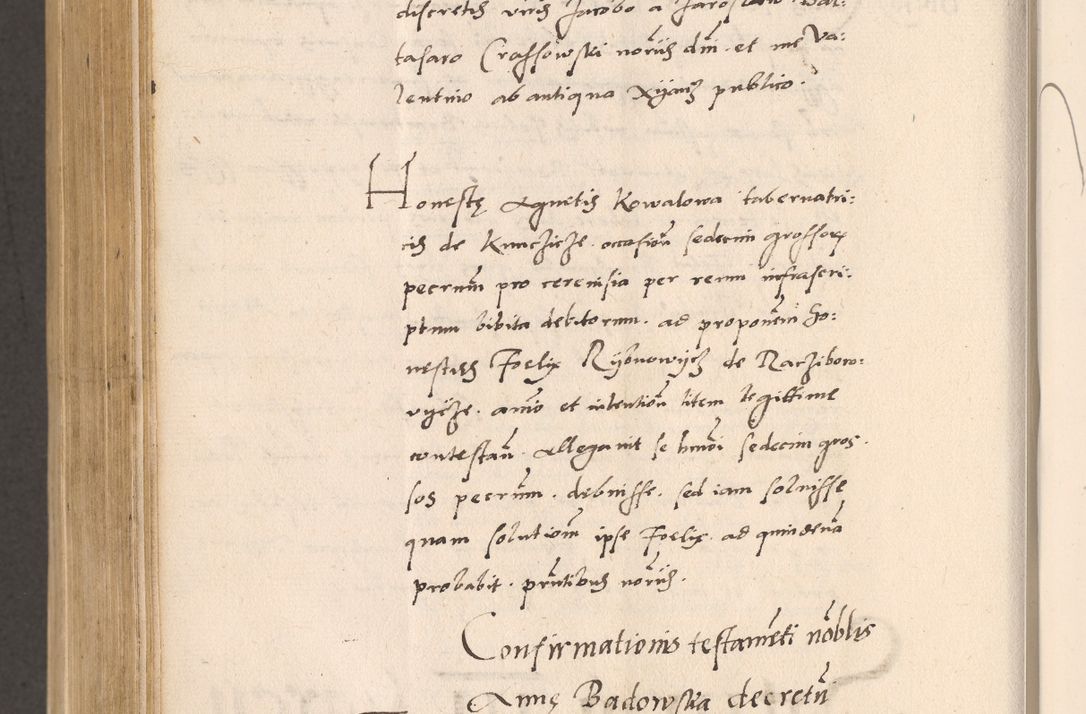 discretis viris Jacobo a Jaroslaw. Bal:
tasaro Crassowski nor̃ijs dñi. et me Va:
lentino ab antiqua Rżanÿ publico.
Honestę Agnetis Kowalowa tabernatri:
cis de Knicziże. occasion̄ sedecim grossorꝝ
pecruñi pro cerevisia per reum infrascri:
ptum bibita debitorum. ad proponen̄ ho:
nestus Foelix Rybnowycz de Raczibow:
vycze. anĩo et intention̄ litem legittime
contestan̄. allegavit se hmõi sedecim gros.
sos pecruñi. debuisse. sed iam soluisse
quam solutionẽ ipse Foelix. ad quindenã
probabit. pñtibus nor̃ijs.
Confirmationis testamẽti nõblis
Annę Badowska decretũ